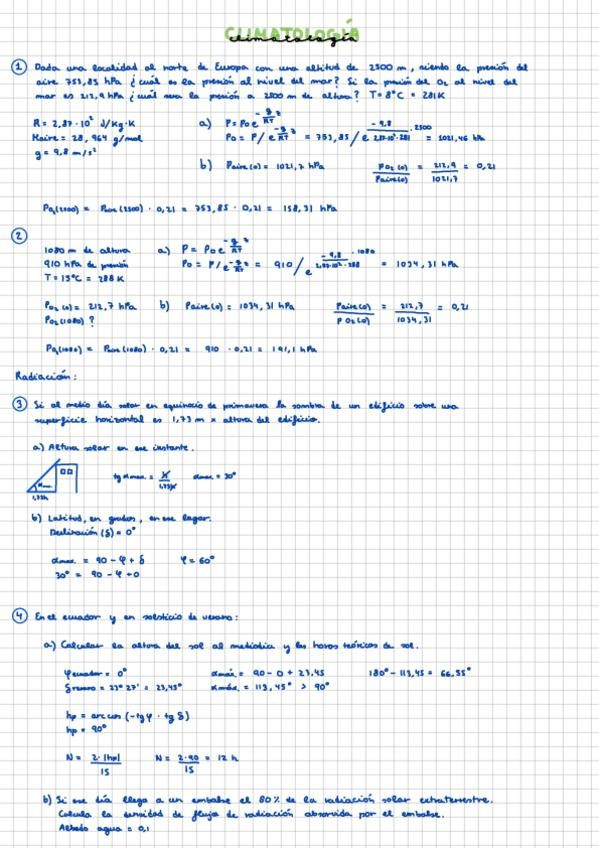 CLIMATOLOGÍA
climatología
① Dada una localidad al norte de Europa con una altitud de 2500 m, siendo la presión del
aire 753,85 hPa ¿cuál es la presión al nivel del mar? Si la presión del O₂ al nivel del
mar es 212,9 hPa ¿cuál sera la presión a 2500 m de altura? T=8°C = 281K
R = 2,87·10² J/Kg·K
Maire = 28,964 g/mol
g = 9,8 m/s²
a) P = P₀ e^(-g/RT z)
P₀ = P/e^(-g/RT z) = 753,85 / e^(-9,8/2,87·10²·281 · 2500) = 1021,46 hPa
b) Paire(0) = 1021,7 hPa PO₂(0)/Paire(0) = 212,9/1021,7 = 0,21
PO₂(2500) = Paire(2500) · 0,21 = 753,85 · 0,21 = 158,31 hPa
②
1080 m de altura
910 hPa de presión
T = 15°C = 288 K
a) P = P₀ e^(-g/RT z)
P₀ = P/e^(-g/RT z) = 910 / e^(-9,8/2,87·10²·288 · 1080) = 1034,31 hPa
PO₂(0) = 212,7 hPa b) Paire(0) = 1034,31 hPa Paire(0)/PO₂(0) = 212,7/1034,31 = 0,21
PO₂(1080) ?
PO₂(1080) = Paire(1080) · 0,21 = 910 · 0,21 = 191,1 hPa
Radiación:
③ Si al medio día solar en equinocio de primavera la sombra de un edificio sobre una
superficie horizontal es 1,73 m × altura del edificio.
a) Altura solar en ese instante.
αmax.
1,73h
tg αmax. = h/1,73h αmax. = 30°
b) Latitud, en grados, en ese lugar.
Declinación (δ) = 0°
αmax. = 90 - φ + δ φ = 60°
30° = 90 - φ + 0
④ En el ecuador y en solsticio de verano:
a) Calcular la altura del sol al mediodía y las horas teóricas de sol.
φecuador = 0° αmáx. = 90 - 0 + 23,45 180° - 113,45 = 66,55°
δverano = 23° 27' = 23,45° αmáx. = 113,45° > 90°
hp = arc cos (-tg φ · tg δ)
hp = 90°
N = 2·|hp|/15 N = 2·90/15 = 12 h
b) Si ese día llega a un embalse el 80% de la radiación solar extraterrestre.
Calcula la densidad de flujo de radiación absorvida por el embalse.
Albedo agua = 0,1